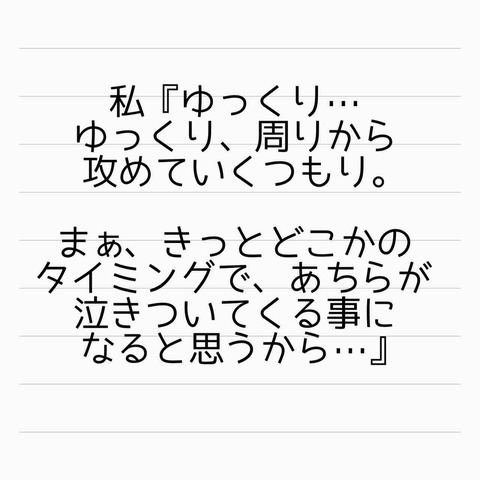 私『ゆっくり…
ゆっくり、周りから
攻めていくつもり。
まぁ、きっとどこかの
タイミングで、あちらが
泣きついてくる事に
なると思うから…』